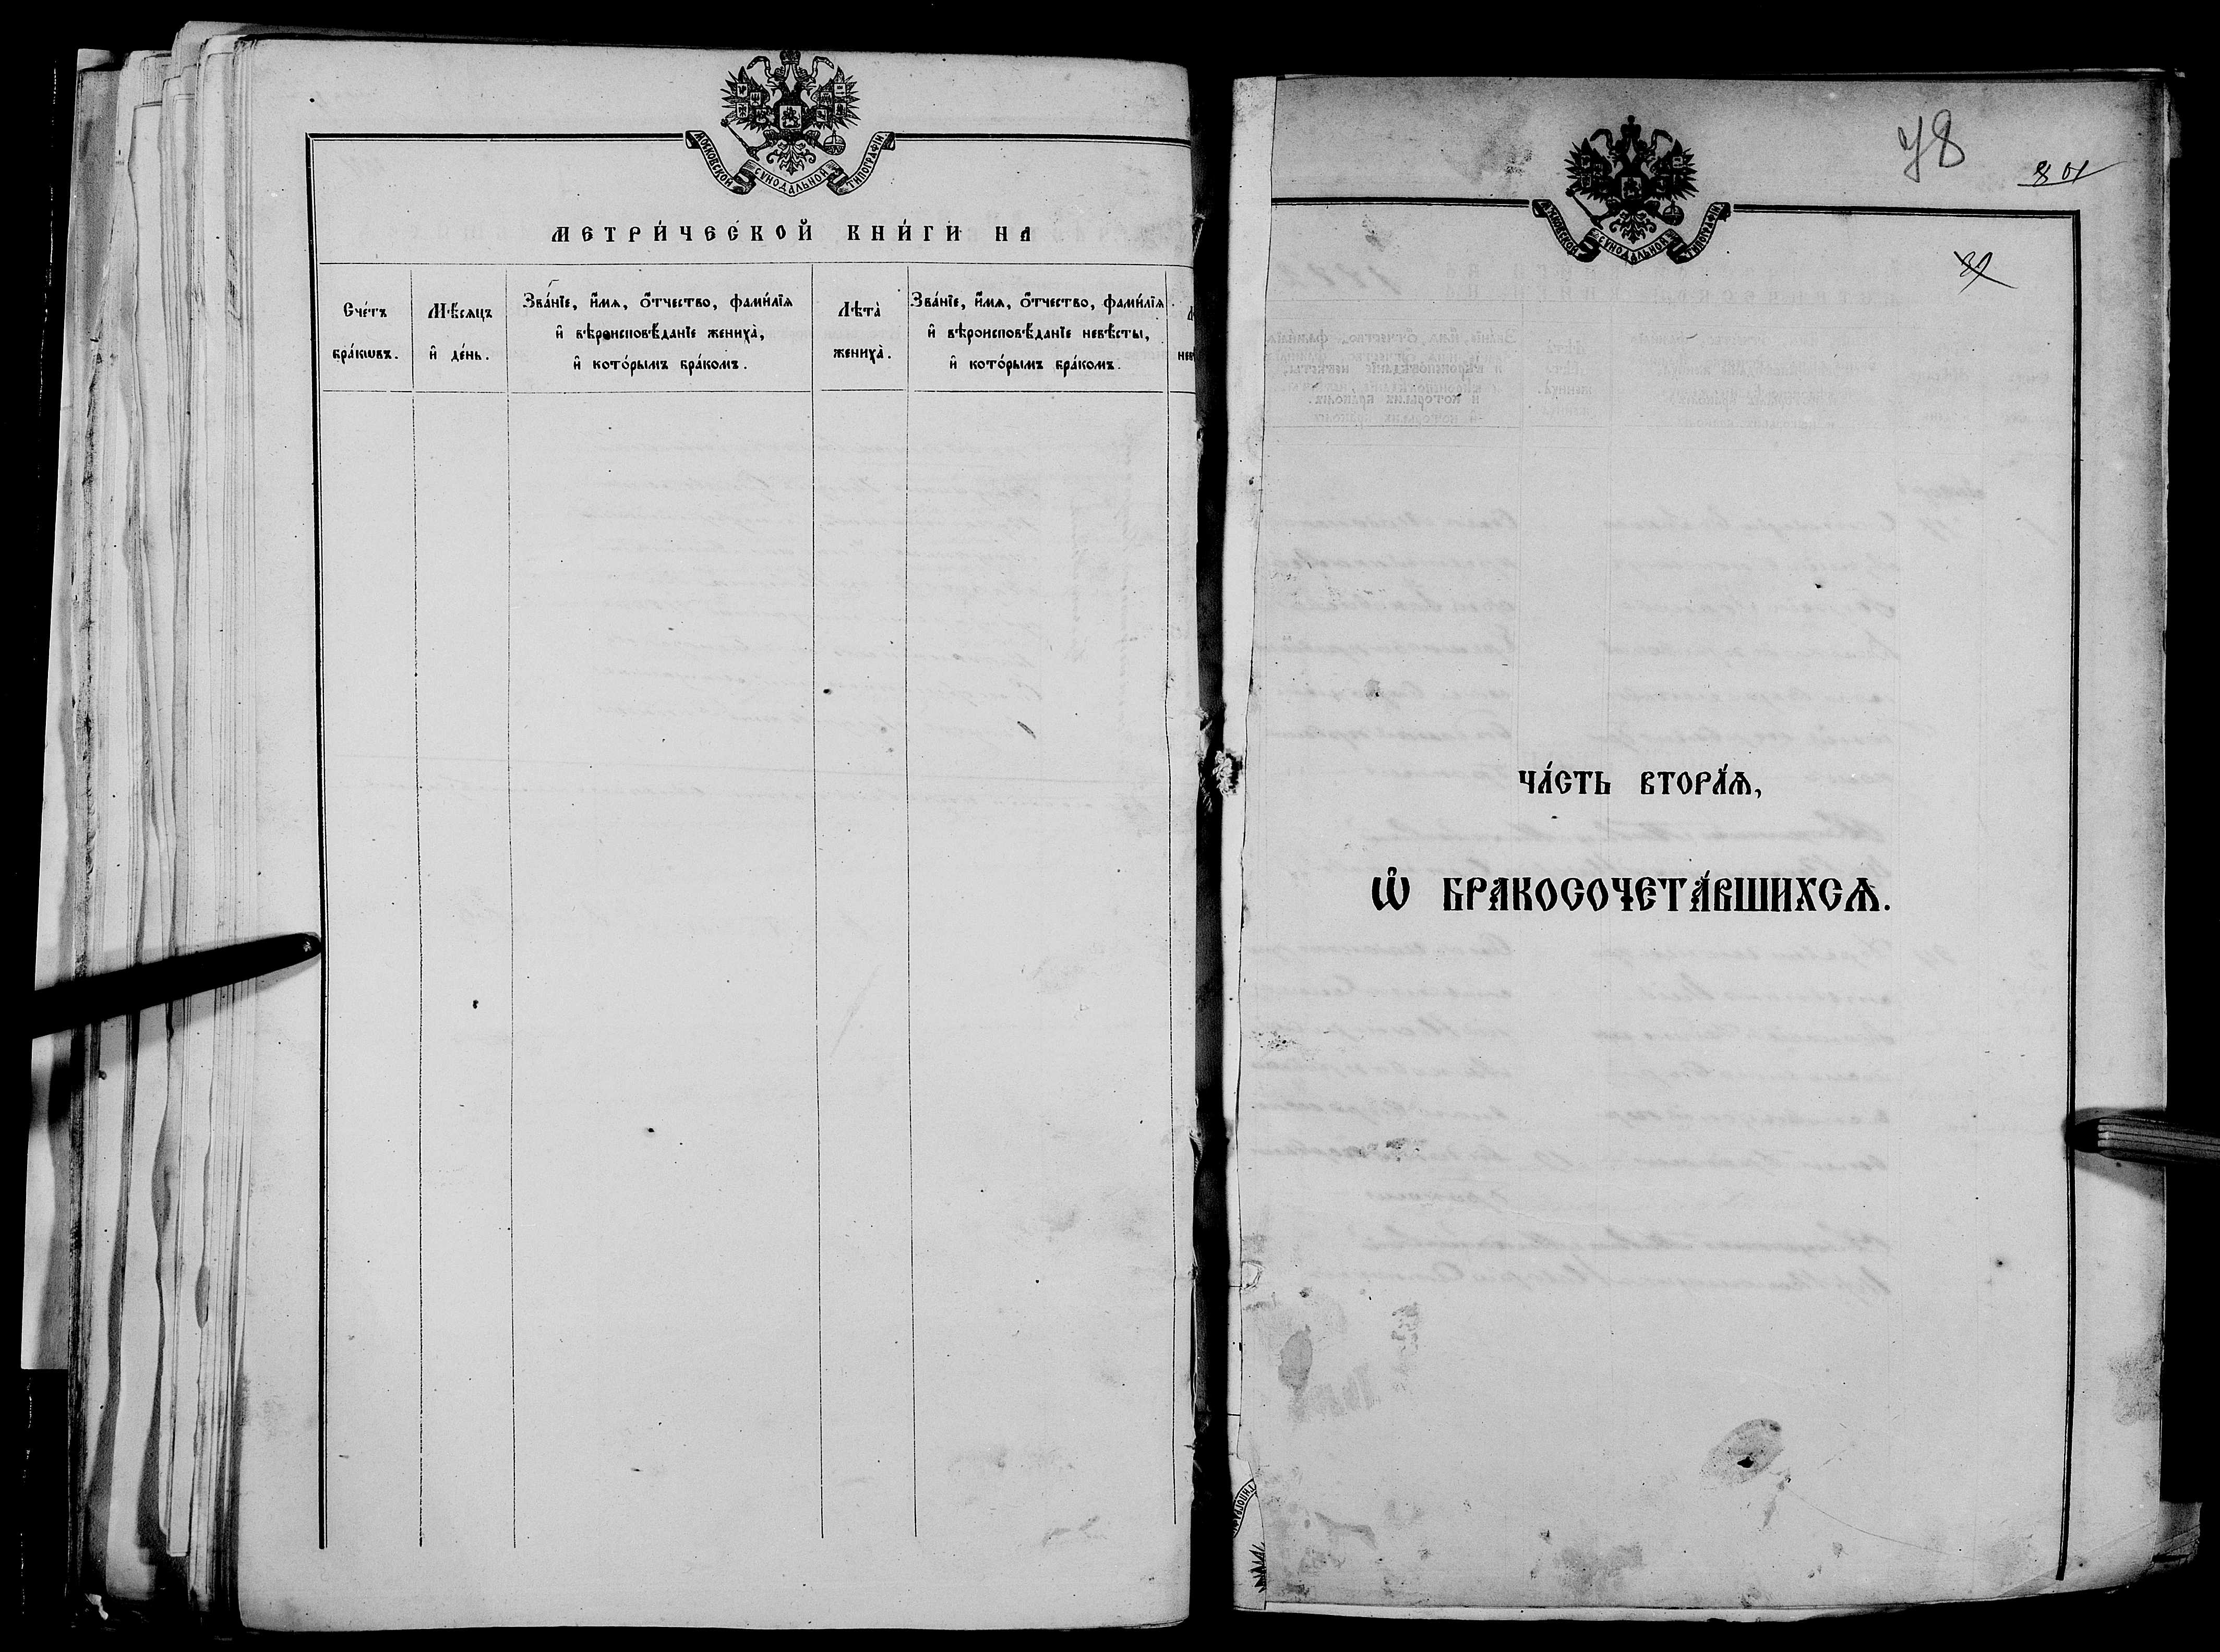 МОСКОВСКОЙ СѴНОДАЛЬНОЙ ТИПОГРАФІИ.
МЕТРИ́ЧЕСКОЙ КНИ́ГИ НА
Сче́тъ бра́кѡвъ.
Мѣ́сяцъ и҆ де́нь.
Зва́нїе, и҆́мя, о҆́тчество, фами́лїя
и҆ вѣроисповѣ́данїе жениха̀,
и҆ кото́рымъ бра́комъ.
Лѣта̀ жениха̀.
Зва́нїе, и҆́мя, о҆́тчество, фами́лїя
и҆ вѣроисповѣ́данїе невѣ́сты,
и҆ кото́рымъ бра́комъ.
78
МОСКОВСКОЙ СѴНОДАЛЬНОЙ ТИПОГРАФІИ.
ЧА́СТЬ ВТОРА́Ѧ,
Ѡ҆ БРАКОСОЧЕТА́ВШИХСѦ.